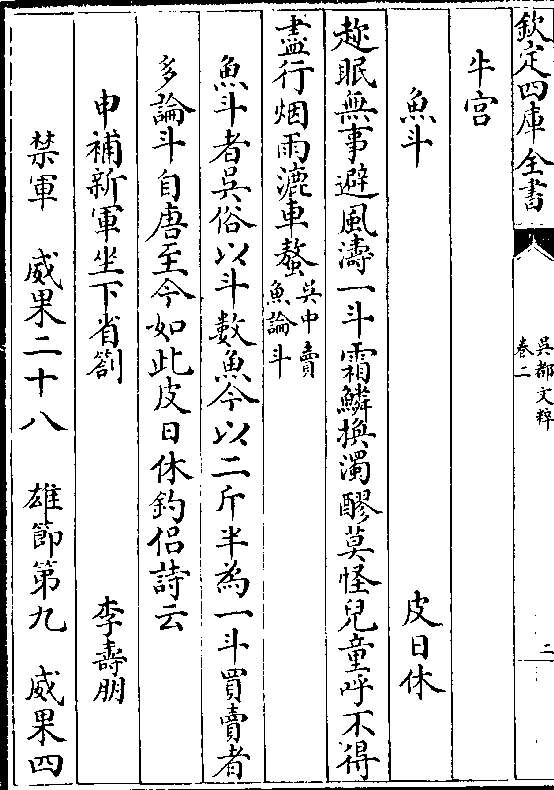 欽定四庫全書
吳都文粹
卷二
二
牛宫
魚斗　皮日休
趂眠無事避風濤一斗霜鱗換濁醪莫怪兒童呼不得
盡行烟雨漉車螯吳中賣魚論斗
魚斗者吳俗以斗數魚今以二斤半為一斗買賣者
多論斗自唐至今如此皮日休釣侣詩云
申補新軍坐下省劄　李壽朋
禁軍　威果二十八　雄節第九　威果四